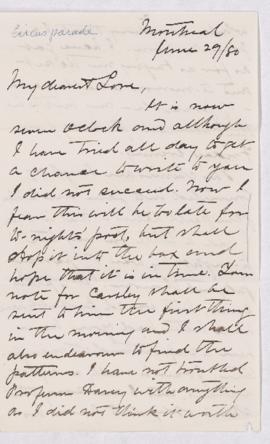 Circus parade
Montreal
June 29/80
My dearest Love,
It is now
seven oclock and although
I have tried all day to get
a chance to write to you
I did not succeed. Now I
fear this will be too late for
to-nights post, but shall
drop it into the box and
hope that it is in time. Your
note for Carsley shall be
sent to him the first thing
in the morning and I shall
also endeavour to find the
patterns. I have not troubled
Professor with anything
as I did not think it worth